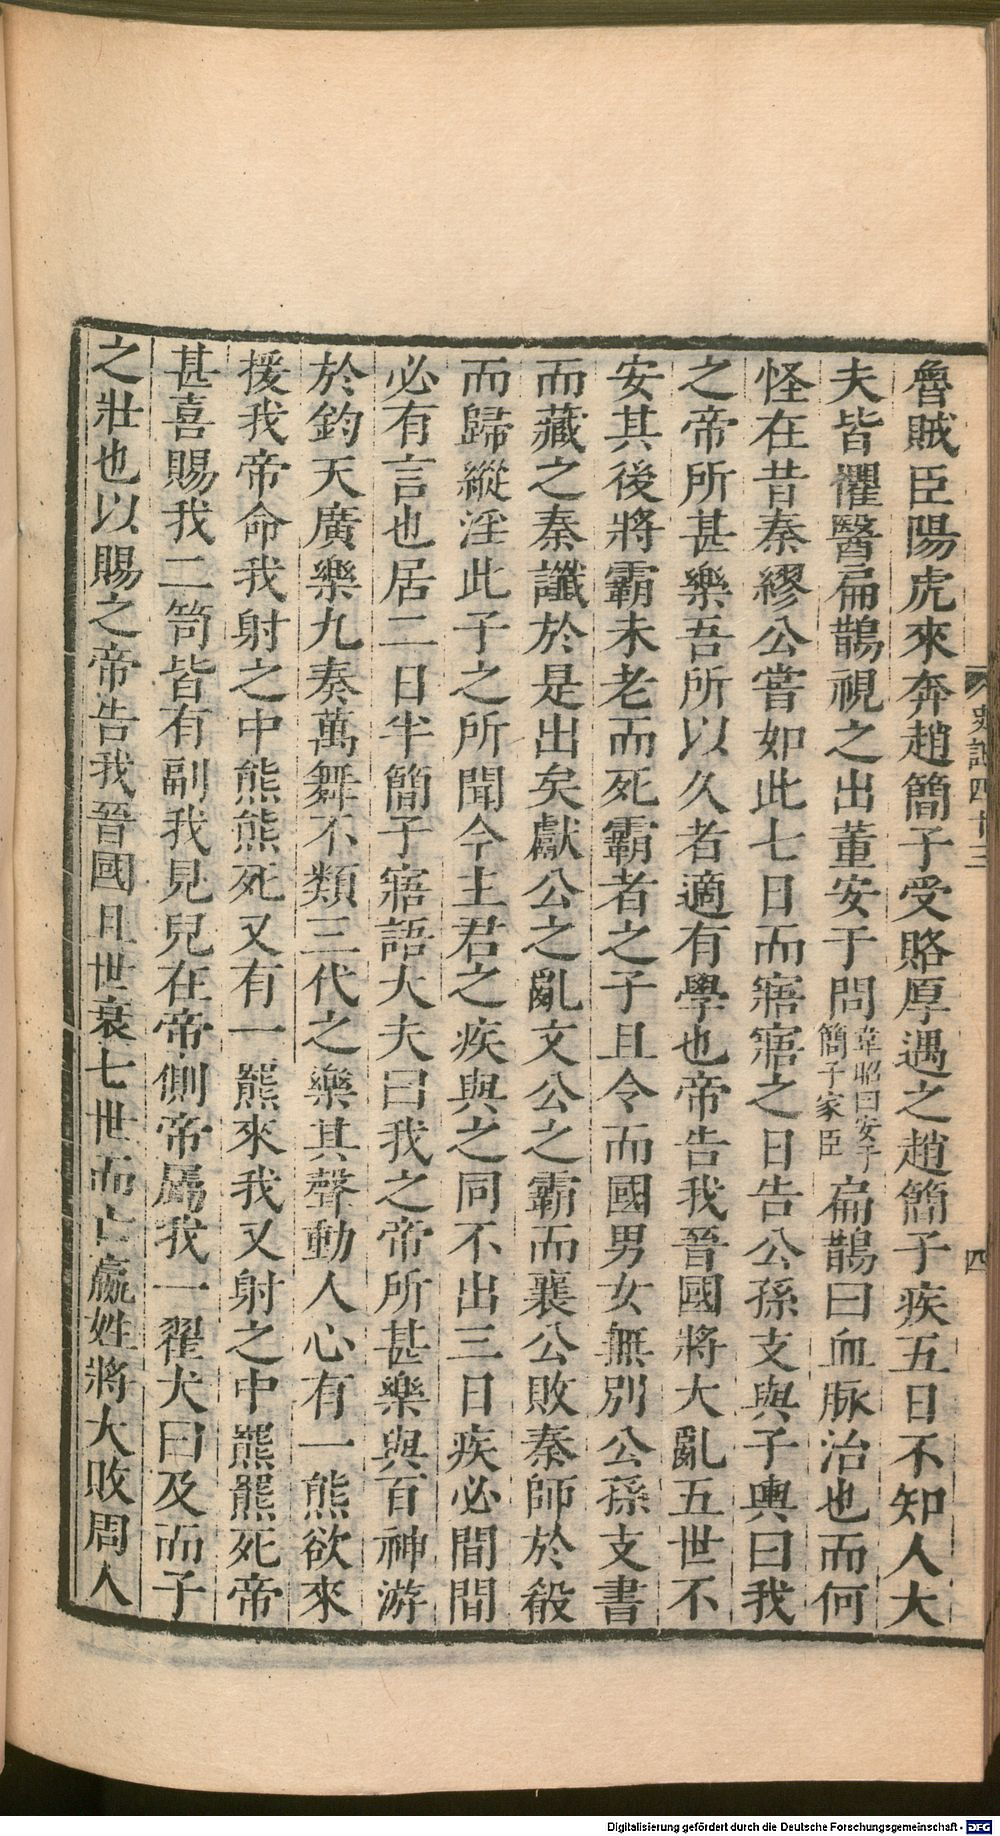 魯賊臣陽虎來奔趙簡子受賂厚遇之趙簡子疾五日不知人大
夫皆懼醫扁鵲視之出董安于問韋昭曰安于簡子家臣扁鵲曰血脈治也而何
怪在昔秦繆公嘗如此七日而寤寤之日告公孫支與子輿曰我
之帝所甚樂吾所以久者適有學也帝告我晉國將大亂五世不
安其後將霸未老而死霸者之子且令而國男女無別公孫支書
而藏之秦讖於是出矣獻公之亂文公之霸而襄公敗秦師於殽
而歸縱淫此子之所聞今主君之疾與之同不出三日疾必間間
必有言也居二日半簡子寤語大夫曰我之帝所甚樂與百神游
於鈞天廣樂九奏萬舞不類三代之樂其聲動人心有一熊欲來
援我帝命我射之中熊熊死又有一羆來我又射之中羆羆死帝
甚喜賜我二笥皆有副我見兒在帝側帝屬我一翟犬曰及而子
之壯也以賜之帝告我晉國且世衰七世而亡嬴姓將大敗周人
史記四十三
四
Digitalisierung gefördert durch die Deutsche Forschungsgemeinschaft - DFG